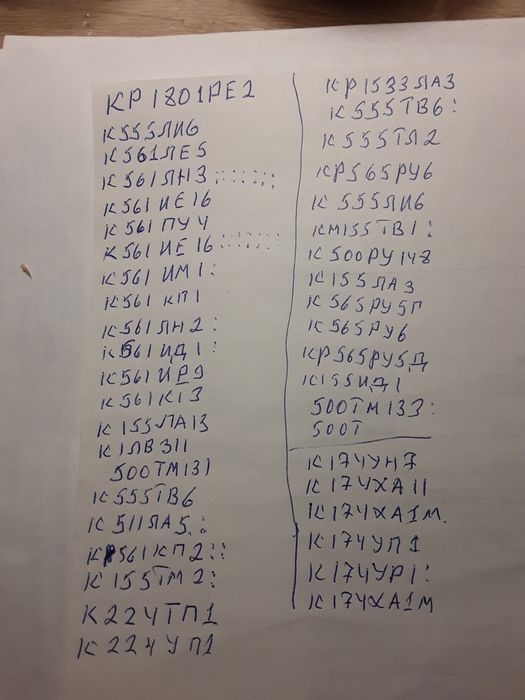 КР1801РЕ2
К555ЛИ6
К561ЛЕ5
К561ЛН3 ::::::
К561ИЕ16
К561ПУ4
К561ИЕ16 ::::::
К561ИМ1:
К561КП1
К561ЛН2:
К561ИД1:
К561ИР9
К155ЛА13
К1ЛВ311
500ТМ131
К555ТВ6
К511ЛА5.:
КР561КП2::
К155ТМ2:
К224ТП1
К224УП1
КР1533ЛА3
К555ТВ6:
К555ТЛ2
КР565РУ6
К555ЛИ6
КМ155ТВ1:
К500РУ148
К155ЛА3
К565РУ5Г
К565РУ6
КР565РУ5Д
К155ИД1
500ТМ133:
500Т
К174УН7
К174ХА11
К174ХА1М.
К174УП1
К174УР1:
К174ХА1М